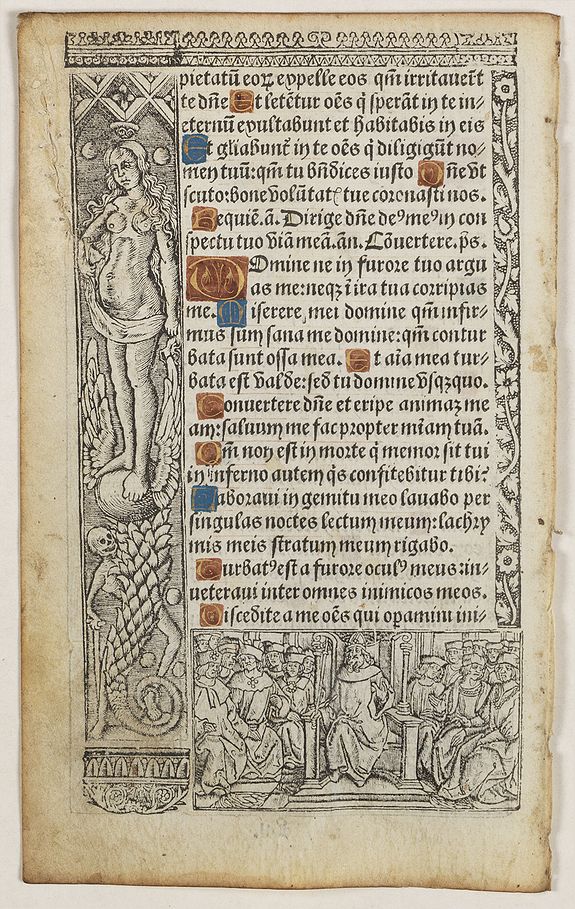 pietatū eoꝝ expelle eos qm̄ irritauer̄t
te dn̄e Et letēt̄ur oēs q̇ sperāt in te in⸗
eternū exultabunt et habitabis in eis
Et gl̄iabunt̄ in te oēs q̇ diligigūt no⸗
men tuū: qm̄ tu bn̄dices iusto Dn̄e vt
scuto: bone volūtat̄ tue coronasti nos.
Requiē. ā. Dirige dn̄e deꝰ meꝰ in con
spectu tuo viā meā. an. Cōuertere. p̄s.
Domine ne in furore tuo argu
as me: neqꝫ ī ira tua corripias
me. Miserere mei domine qm̄ infir⸗
mus sum sana me domine: qm̄ contur
bata sunt ossa mea. Et aīa mea tur⸗
bata est valde: sed tu domine vsqꝫquo.
Conuertere dn̄e et eripe animaꝫ me
am: saluum me fac propter mīam tuā.
Qm̄ non est in morte q̇ memor sit tui
in inferno autem q̇s confitebitur tibi?
Laboraui in gemitu meo lauabo per
singulas noctes lectum meum: lachry
mis meis stratum meum rigabo.
Turbatꝰ est a furore oculꝰ meus: in⸗
ueteraui inter omnes inimicos meos.
Discedite a me oēs qui opamini ini⸗